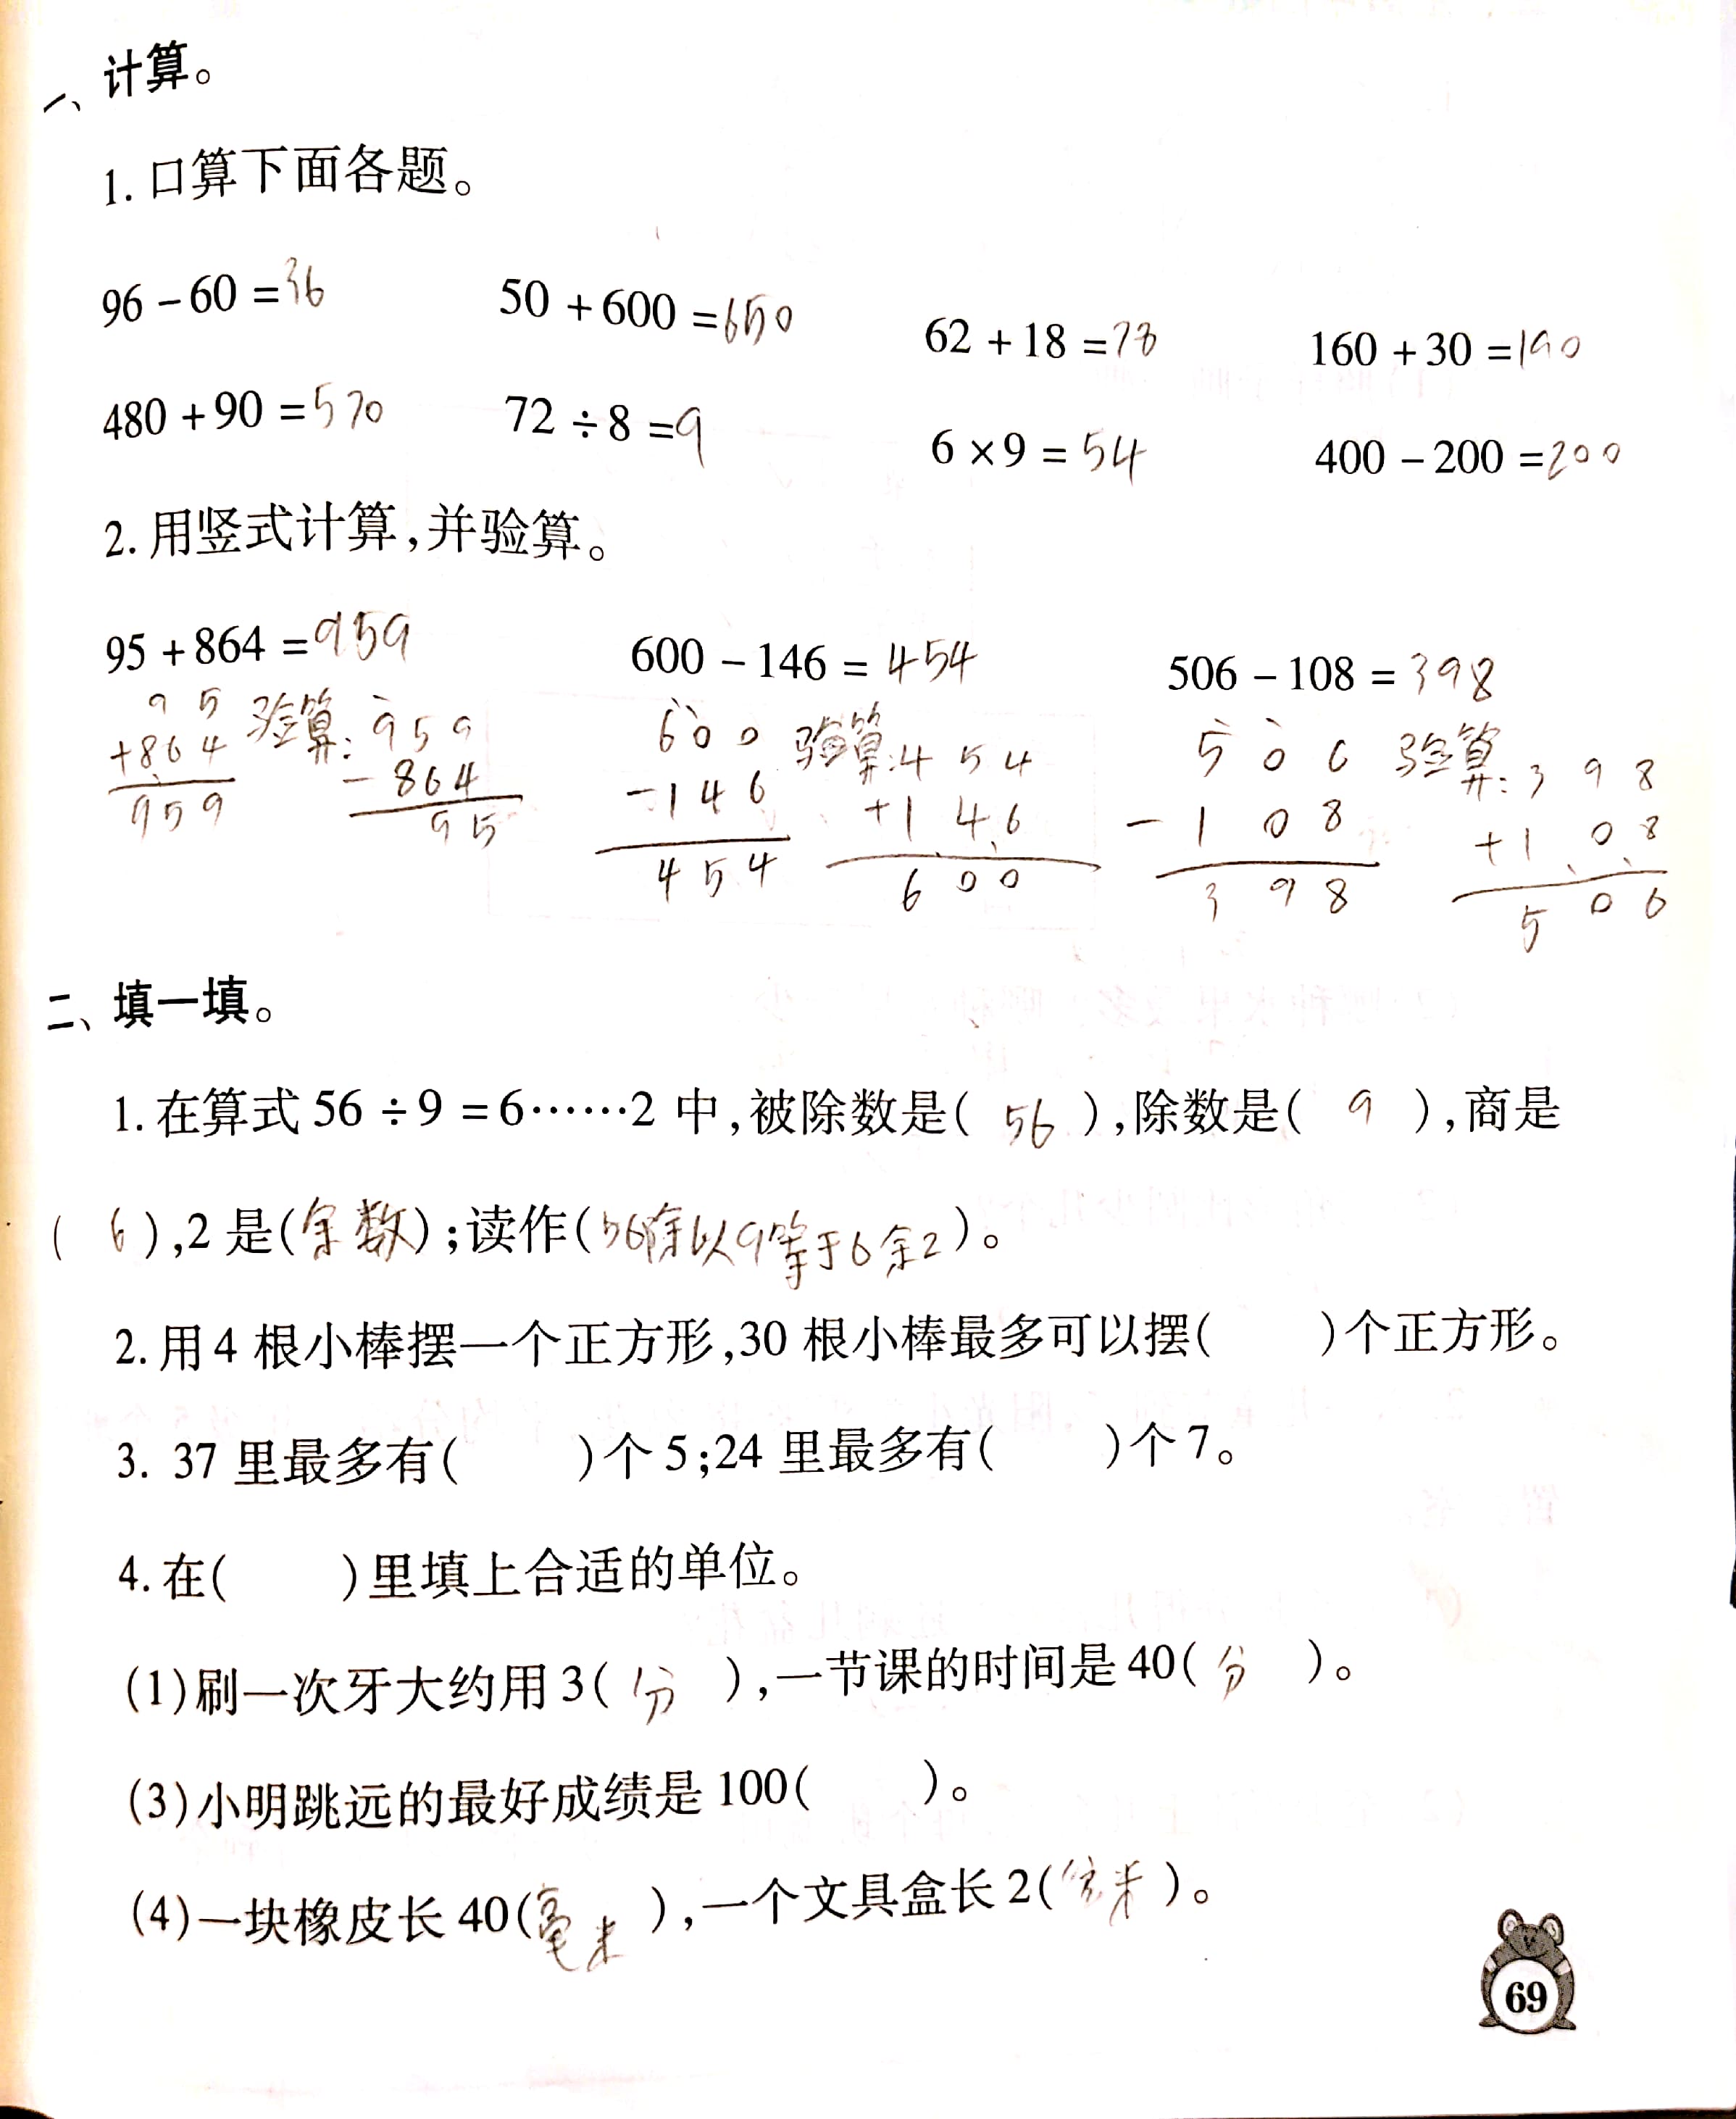 一、计算。
1. 口算下面各题。
96 - 60 = 36 50 + 600 = 650 62 + 18 = 78 160 + 30 = 190
480 + 90 = 570 72 ÷ 8 = 9 6 × 9 = 54 400 - 200 = 200
2. 用竖式计算,并验算。
95 + 864 = 959 600 - 146 = 454 506 - 108 = 398
95 验算: 959 600 验算: 454 506 验算: 398
+864 -864 -146 +146 -108 +108
959 95 454 600 398 506
二、填一填。
1. 在算式 56 ÷ 9 = 6……2 中,被除数是( 56 ),除数是( 9 ),商是
( 6 ),2 是(余数);读作(56除以9等于6余2)。
2. 用 4 根小棒摆一个正方形,30 根小棒最多可以摆( )个正方形。
3. 37 里最多有( )个 5;24 里最多有( )个 7。
4. 在( )里填上合适的单位。
(1)刷一次牙大约用 3( 分 ),一节课的时间是 40( 分 )。
(3)小明跳远的最好成绩是 100( )。
(4)一块橡皮长 40(毫米),一个文具盒长 2(分米)。
69